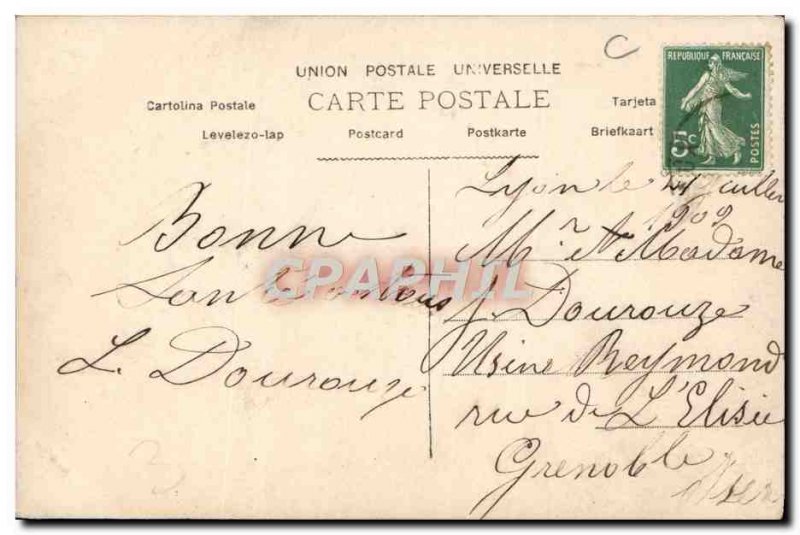 C
UNION POSTALE UNIVERSELLE
CARTE POSTALE
Cartolina Postale
Tarjeta
Levelezo-lap
Postcard
Postkarte
Briefkaart
REPUBLIQUE FRANÇAISE
5c
POSTES
Bonne
Santé à tous
L. Dourouze
Lyon le 21 Juillet
1909
Mr et Madame
J. Dourouze
Usine Reymond
rue de L'Elisée
Grenoble
Isère
CPRAPHIL
3